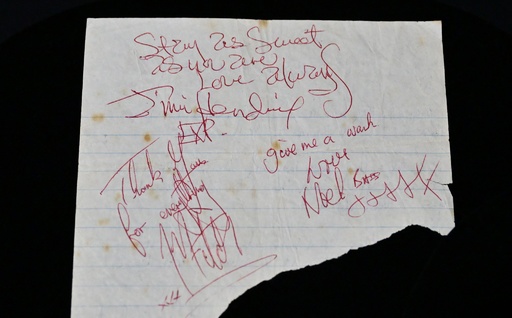 Stay as Sweet
as you are
Love always
Jimi Hendrix
EXP.
Thank You
for everything
Mitch
give me a wash
love
Noel BASS
xxxxx